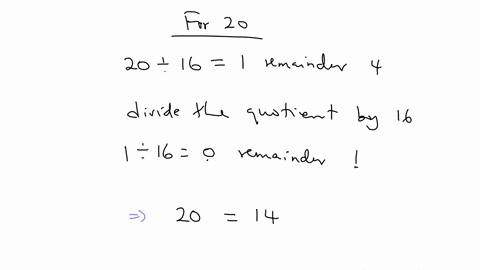 For 20
20 ÷ 16 = 1 remainder 4
divide the quotient by 16
1 ÷ 16 = 0 remainder 1
⇒ 20 = 14